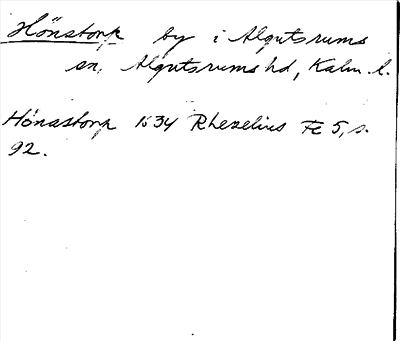 Hönstorp by i Algutsrums
sn, Algutsrums hd, Kalm. l.
Hönastorp 1634 Rhezelius Fc 5, s.
92.